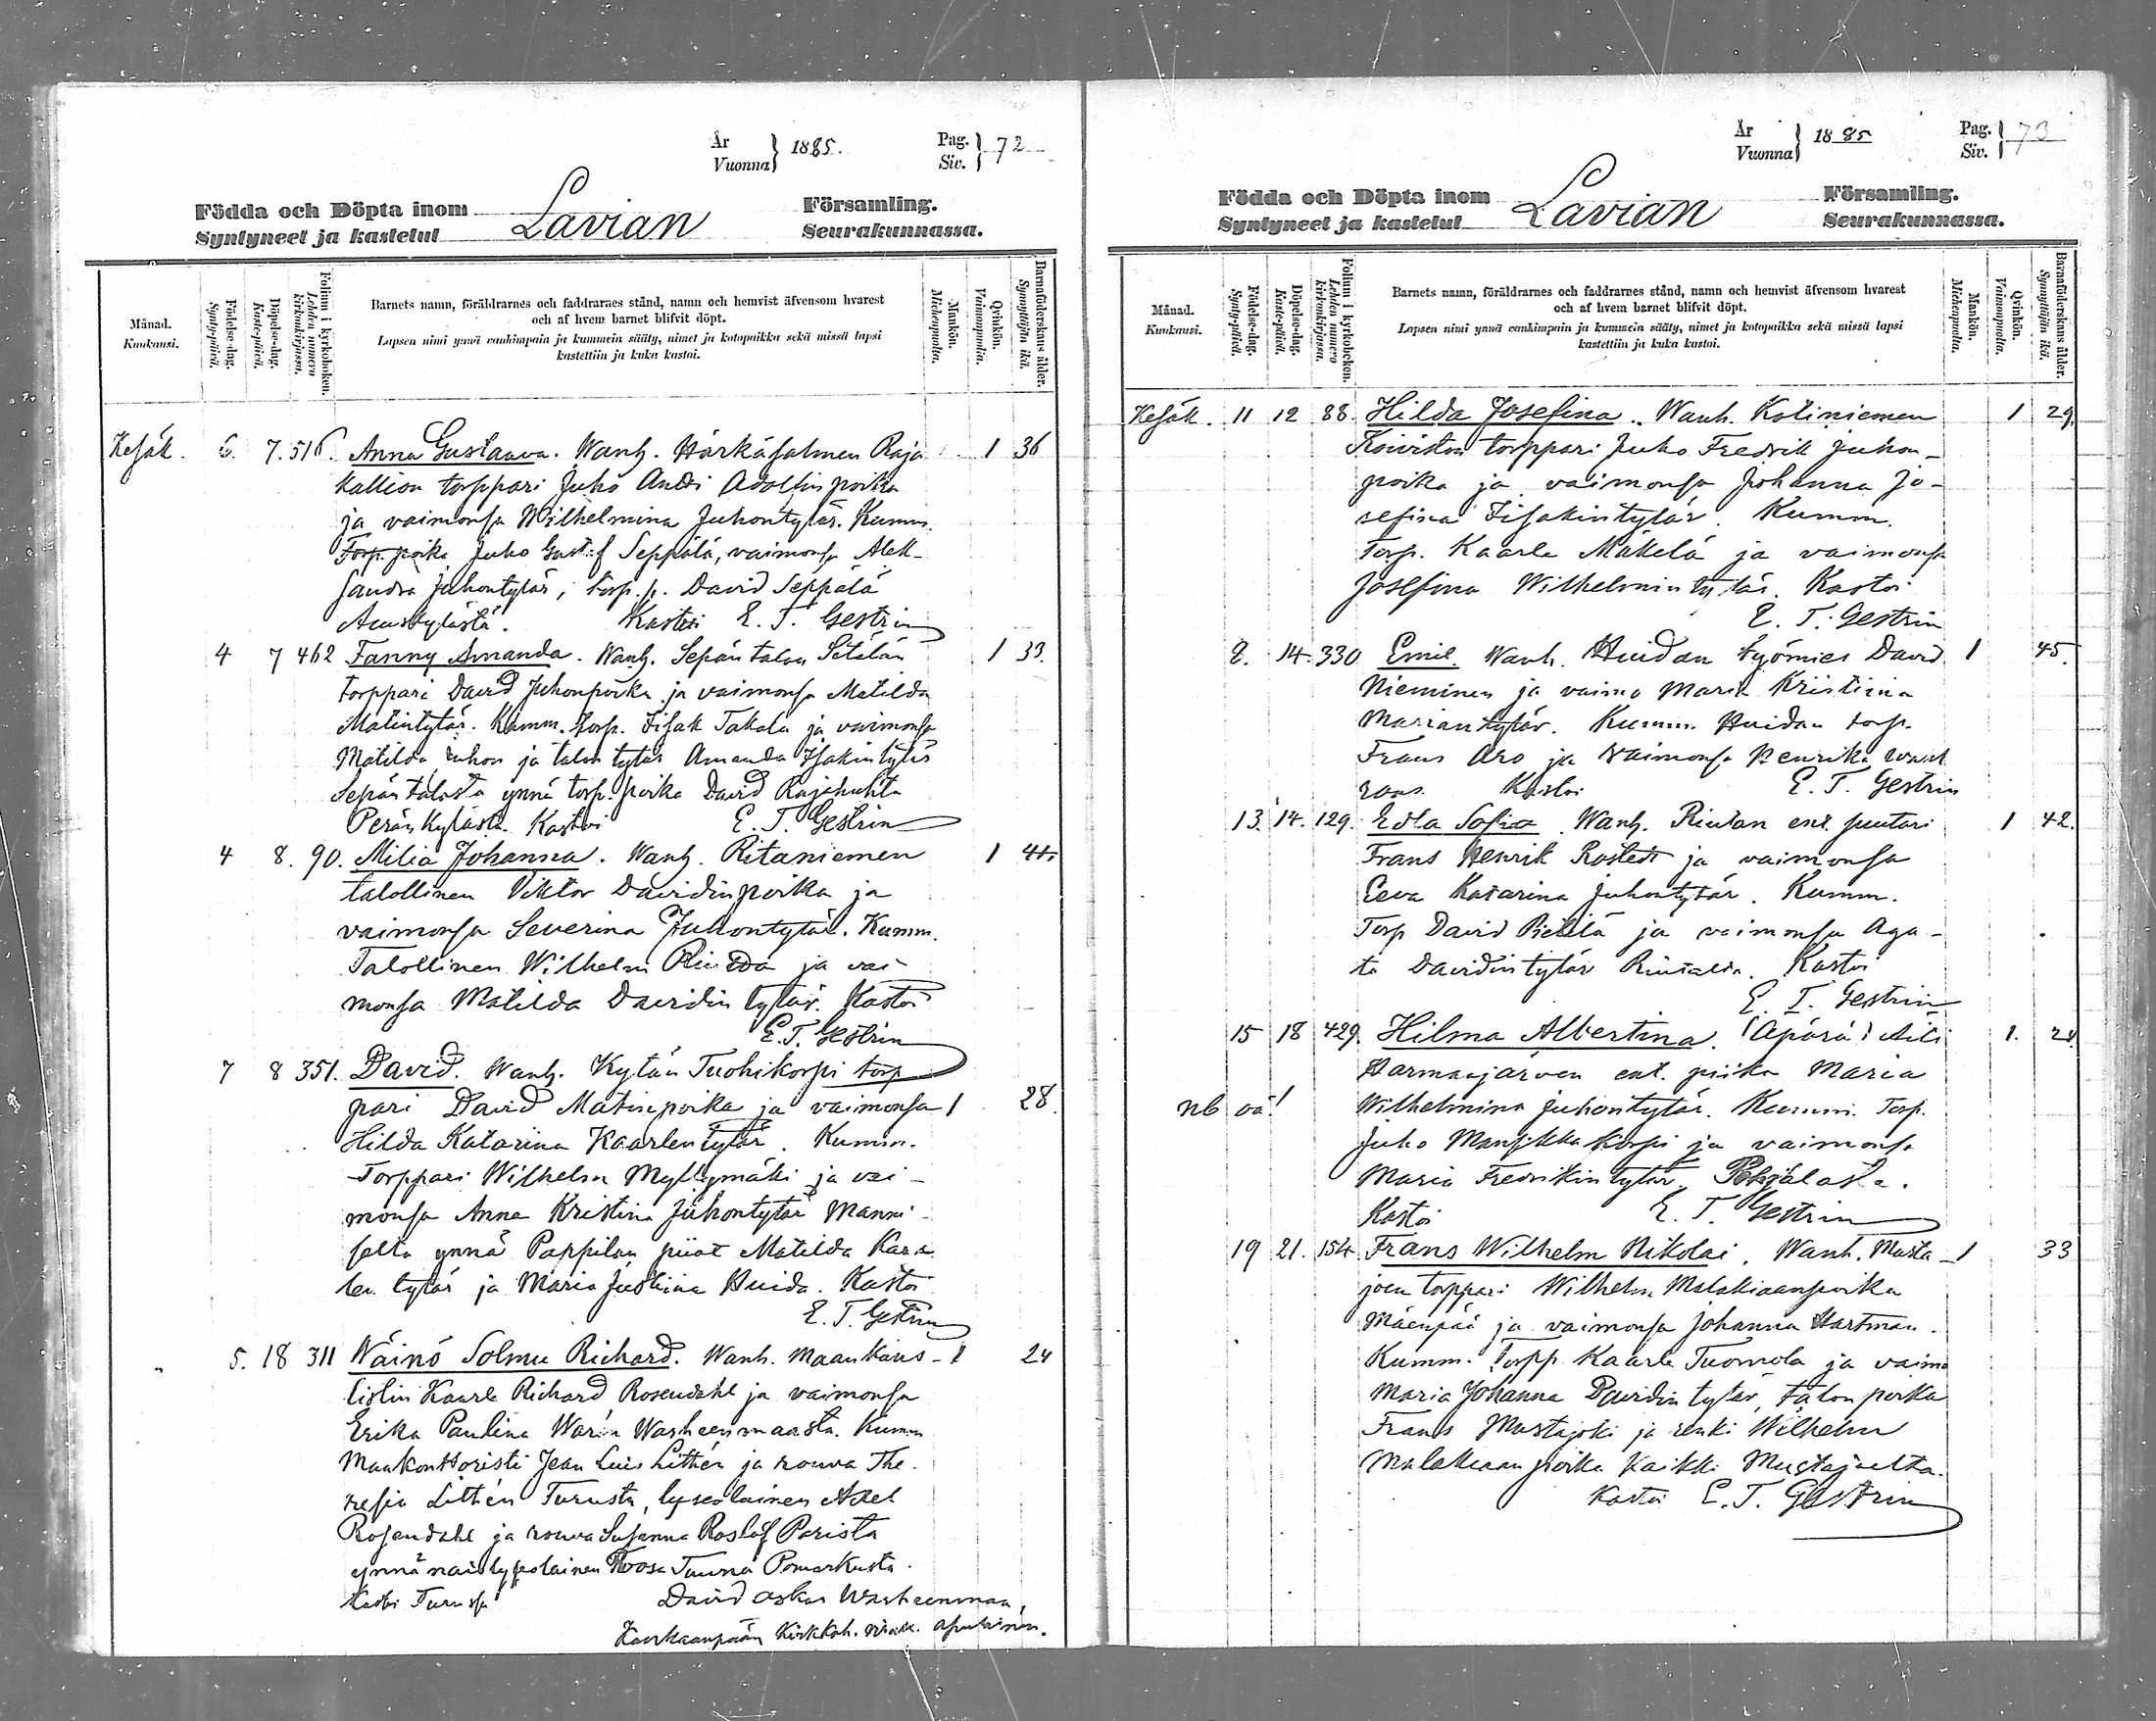 År
Vuonna
1885.
Pag.
Siv.
72
Födda och Döpta inom
Syntyneet ja kastetut
Lavian
Församling.
Seurakunnassa.
Månad.
Kuukausi.
Födelse-dag.
Synty-päivä.
Döpelse-dag.
Kaste-päivä.
Folium i kyrkoboken.
Lehden numero kirkonkirjassa.
Barnets namn, föräldrarnes och faddrarnes stånd, namn och hemvist äfvensom hvarest
och af hvem barnet blifvit döpt.
Lapsen nimi ynnä vanhimpain ja kummein sääty, nimet ja kotopaikka sekä missä lapsi
kastettiin ja kuka kastoi.
Mankön.
Miehenpuolta.
Qvinkön.
Vaimonpuolta.
Barnaföderskans ålder.
Synnyttäjän ikä.
Kesäk. 6. 7. 516. Anna Gustaava. Wanh. Härkäsalmen Raja 1 36
kallion torppari Juho Antti Adolfinpoika
ja vaimonsa Wilhelmina Juhontytär. Kumm.
Torp. poika Juho Gustaf Seppälä, vaimonsa Alek-
sandra Juhontytär, torp. p. David Seppälä
Kastoi E. T. Gestrin
4 7 462 Fanny Amanda. Wanh. Sepän talon Setälän 1 33.
torppari David Juhonpoika ja vaimonsa Matilda
Matintytär. Kumm. torp. Iisak Takala ja vaimonsa
Matilda ja talon tytär Amanda Isakintytär
Sepäntalosta ynnä torp. poika David Rajahuhta
Peränkylästä. Kastoi E. T. Gestrin
4 8. 90. Milia Johanna. Wanh. Ritaniemen 1 44
talollinen Viktor Davidinpoika ja
vaimonsa Severina Juhontytär. Kumm.
Talollinen Wilhelm ja vai-
monsa Matilda Davidin tytär. Kastoi
E. T. Gestrin
7 8 351. David. Wanh. Kylän Tuohikorpi torp
pari David Matinpoika ja vaimonsa 1 28.
Hilda Katariina Kaarlentytär. Kumm.
Torppari Wilhelm Myllymäki ja vai-
monsa Anna Kristina Juhontytär Manni-
selta ynnä Pappilan piiat Matilda Kaar
len tytär ja Maria Justiina Huida. Kastoi
E. T. Gestrin
5. 18 311 Wäinö Solmu Richard. Wanh. Maankans- 1 24
listin Kaarle Richard Rosendahl ja vaimonsa
Erika Paulina Warén Warheenmaasta. Kumm
Maakonttoristi Jean Luis Lithén ja rouva The-
resia Lithén Turusta, lyseolainen Axel
Rosendahl ja rouva Susanna Roslöf Porista
ynnä naislyseolainen Roosa Tuuna Pomarkusta.
Kastoi Turussa David Oskar Warheenmaa,
Kankaanpään Kirkkoh. virak. apulainen.
År
Vuonna
1885
Pag.
Siv.
73
Födda och Döpta inom
Syntyneet ja kastetut
Lavian
Församling.
Seurakunnassa.
Månad.
Kuukausi.
Födelse-dag.
Synty-päivä.
Döpelse-dag.
Kaste-päivä.
Folium i kyrkoboken.
Lehden numero kirkonkirjassa.
Barnets namn, föräldrarnes och faddrarnes stånd, namn och hemvist äfvensom hvarest
och af hvem barnet blifvit döpt.
Lapsen nimi ynnä vanhimpain ja kummein sääty, nimet ja kotopaikka sekä missä lapsi
kastettiin ja kuka kastoi.
Mankön.
Miehenpuolta.
Qvinkön.
Vaimonpuolta.
Barnaföderskans ålder.
Synnyttäjän ikä.
Kesäk. 11 12 88. Hilda Josefina. Wanh. Kotiniemen 1 29.
Koiviston torppari Juho Fredrik Juhon-
poika ja vaimonsa Johanna Jo-
sefina Iisakintytär. Kumm.
Torp. Kaarle Mäkelä ja vaimonsa
Josefina Wilhelmintytär. Kastoi
E. T. Gestrin
8. 14. 330 Emil. Wanh. Huidan työmies David 1 45.
Nieminen ja vaimo Maria Kristiina
Mariantytär. Kumm. Huidan torp.
Frans Aro ja vaimonsa Henrika
Kastoi E. T. Gestrin
13. 14. 129. Edla Sofia. Wanh. Riutan ent. puutari 1 42.
Frans Henrik Rostedt ja vaimonsa
Eeva Katarina Juhontytär. Kumm.
Torp David Pietilä ja vaimonsa Aga-
ta Davidintytär Riutalta. Kastoi
E. T. Gestrin
15 18 429. Hilma Albertina. (Äpärä) Äiti 1. 24.
Harmaajärven ent. piika Maria
nb oä! Wilhelmina Juhontytär. Kummi. Torp.
Juho Mansikkakorpi ja vaimonsa
Maria Fredrikintytär Pohjalasta.
Kastoi E. T. Gestrin
19 21. 154 Frans Wilhelm Nikolai. Wanh. Musta- 1 33
joen torppari Wilhelm Malakiaanpoika
Mäenpää ja vaimonsa Johanna Hartman.
Kumm. Torpp. Kaarle Tuomola ja vaimo
Maria Johanna Davidin tytär, talon poika
Frans Mustajoki ja renki Wilhelm
Malakiaanpoika kaikki Mustajoelta.
Kastoi E. T. Gestrin